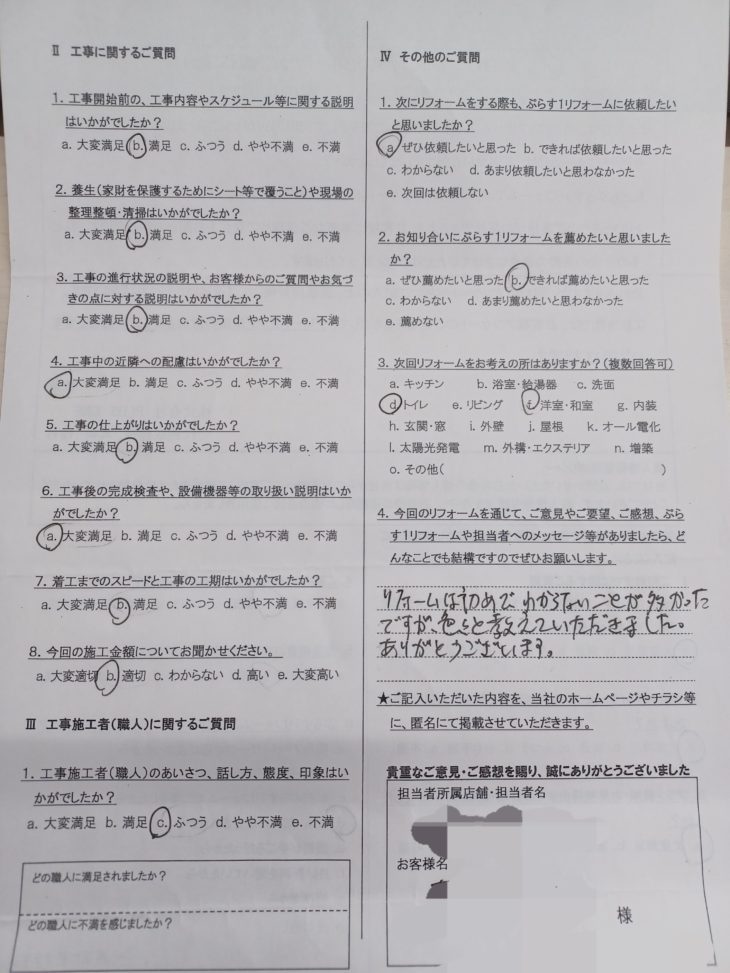 Ⅱ 工事に関するご質問
1. 工事開始前の、工事内容やスケジュール等に関する説明
はいかがでしたか？
a. 大変満足 b. 満足 c. ふつう d. やや不満 e. 不満
2. 養生(家財を保護するためにシート等で覆うこと)や現場の
整理整頓・清掃はいかがでしたか？
a. 大変満足 b. 満足 c. ふつう d. やや不満 e. 不満
3. 工事の進行状況の説明や、お客様からのご質問やお気づ
きの点に対する説明はいかがでしたか？
a. 大変満足 b. 満足 c. ふつう d. やや不満 e. 不満
4. 工事中の近隣への配慮はいかがでしたか？
a. 大変満足 b. 満足 c. ふつう d. やや不満 e. 不満
5. 工事の仕上がりはいかがでしたか？
a. 大変満足 b. 満足 c. ふつう d. やや不満 e. 不満
6. 工事後の完成検査や、設備機器等の取り扱い説明はいか
がでしたか？
a. 大変満足 b. 満足 c. ふつう d. やや不満 e. 不満
7. 着工までのスピードと工事の工期はいかがでしたか？
a. 大変満足 b. 満足 c. ふつう d. やや不満 e. 不満
8. 今回の施工金額についてお聞かせください。
a. 大変適切 b. 適切 c. わからない d. 高い e. 大変高い
Ⅲ 工事施工者(職人)に関するご質問
1. 工事施工者(職人)のあいさつ、話し方、態度、印象はい
かがでしたか？
a. 大変満足 b. 満足 c. ふつう d. やや不満 e. 不満
どの職人に満足されましたか？
どの職人に不満を感じましたか？
Ⅳ その他のご質問
1. 次にリフォームをする際も、ぷらす1リフォームに依頼したい
と思いましたか？
a. ぜひ依頼したいと思った b. できれば依頼したいと思った
c. わからない d. あまり依頼したいと思わなかった
e. 次回は依頼しない
2. お知り合いにぷらす1リフォームを薦めたいと思いました
か？
a. ぜひ薦めたいと思った b. できれば薦めたいと思った
c. わからない d. あまり薦めたいと思わなかった
e. 薦めない
3. 次回リフォームをお考えの所はありますか？(複数回答可)
a. キッチン b. 浴室・給湯器 c. 洗面
d. トイレ e. リビング f. 洋室・和室 g. 内装
h. 玄関・窓 i. 外壁 j. 屋根 k. オール電化
l. 太陽光発電 m. 外構・エクステリア n. 増築
o. その他( )
4. 今回のリフォームを通じて、ご意見やご要望、ご感想、ぷら
す1リフォームや担当者へのメッセージ等がありましたら、ど
んなことでも結構ですのでぜひお願いします。
リフォームは初めで わからないことが多かった
ですが、色々と教えていただきました。
ありがとうございます。
★ご記入いただいた内容を、当社のホームページやチラシ等
に、匿名にて掲載させていただきます。
貴重なご意見・ご感想を賜り、誠にありがとうございました
担当者所属店舗・担当者名
お客様名
様